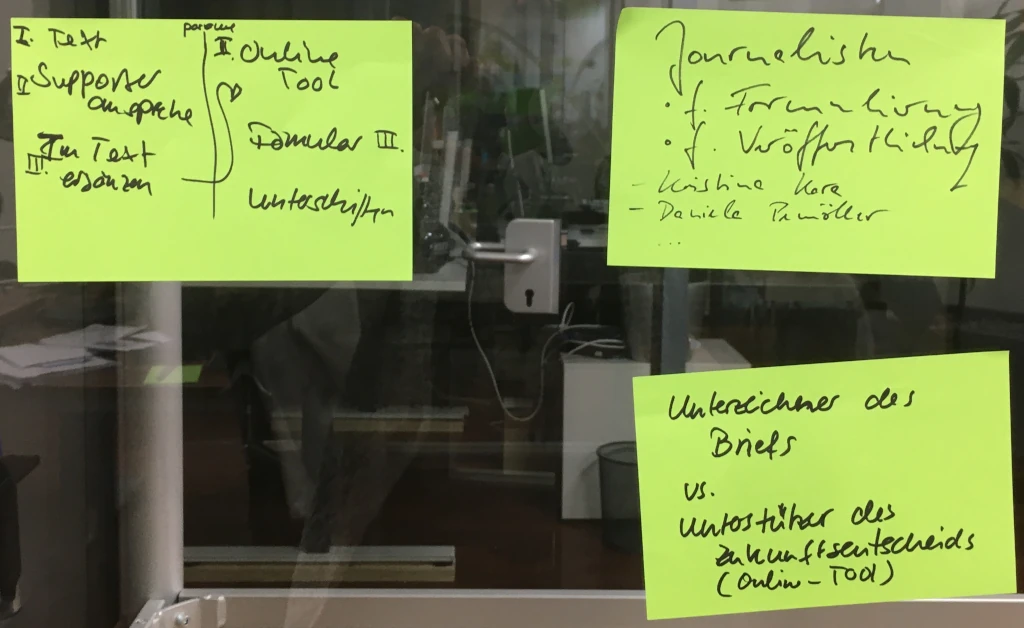 I. Text
II Supporter
ansprache
III. Im Text
ergänzen
II. Online
Tool
Formular III.
Unterschriften
Journalisten
• f. Formulierung
• f. Veröffentlichung
- Kristina
- Daniela
...
Unterzeichner des
Briefs
vs.
Unterstützer des
Zukunftsentscheids
(Online-Tool)